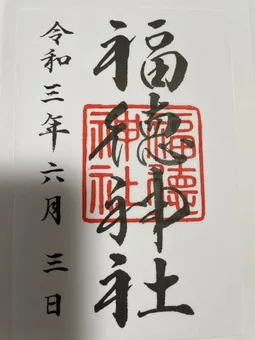 福徳神社
福德
神社
令和三年六月三日